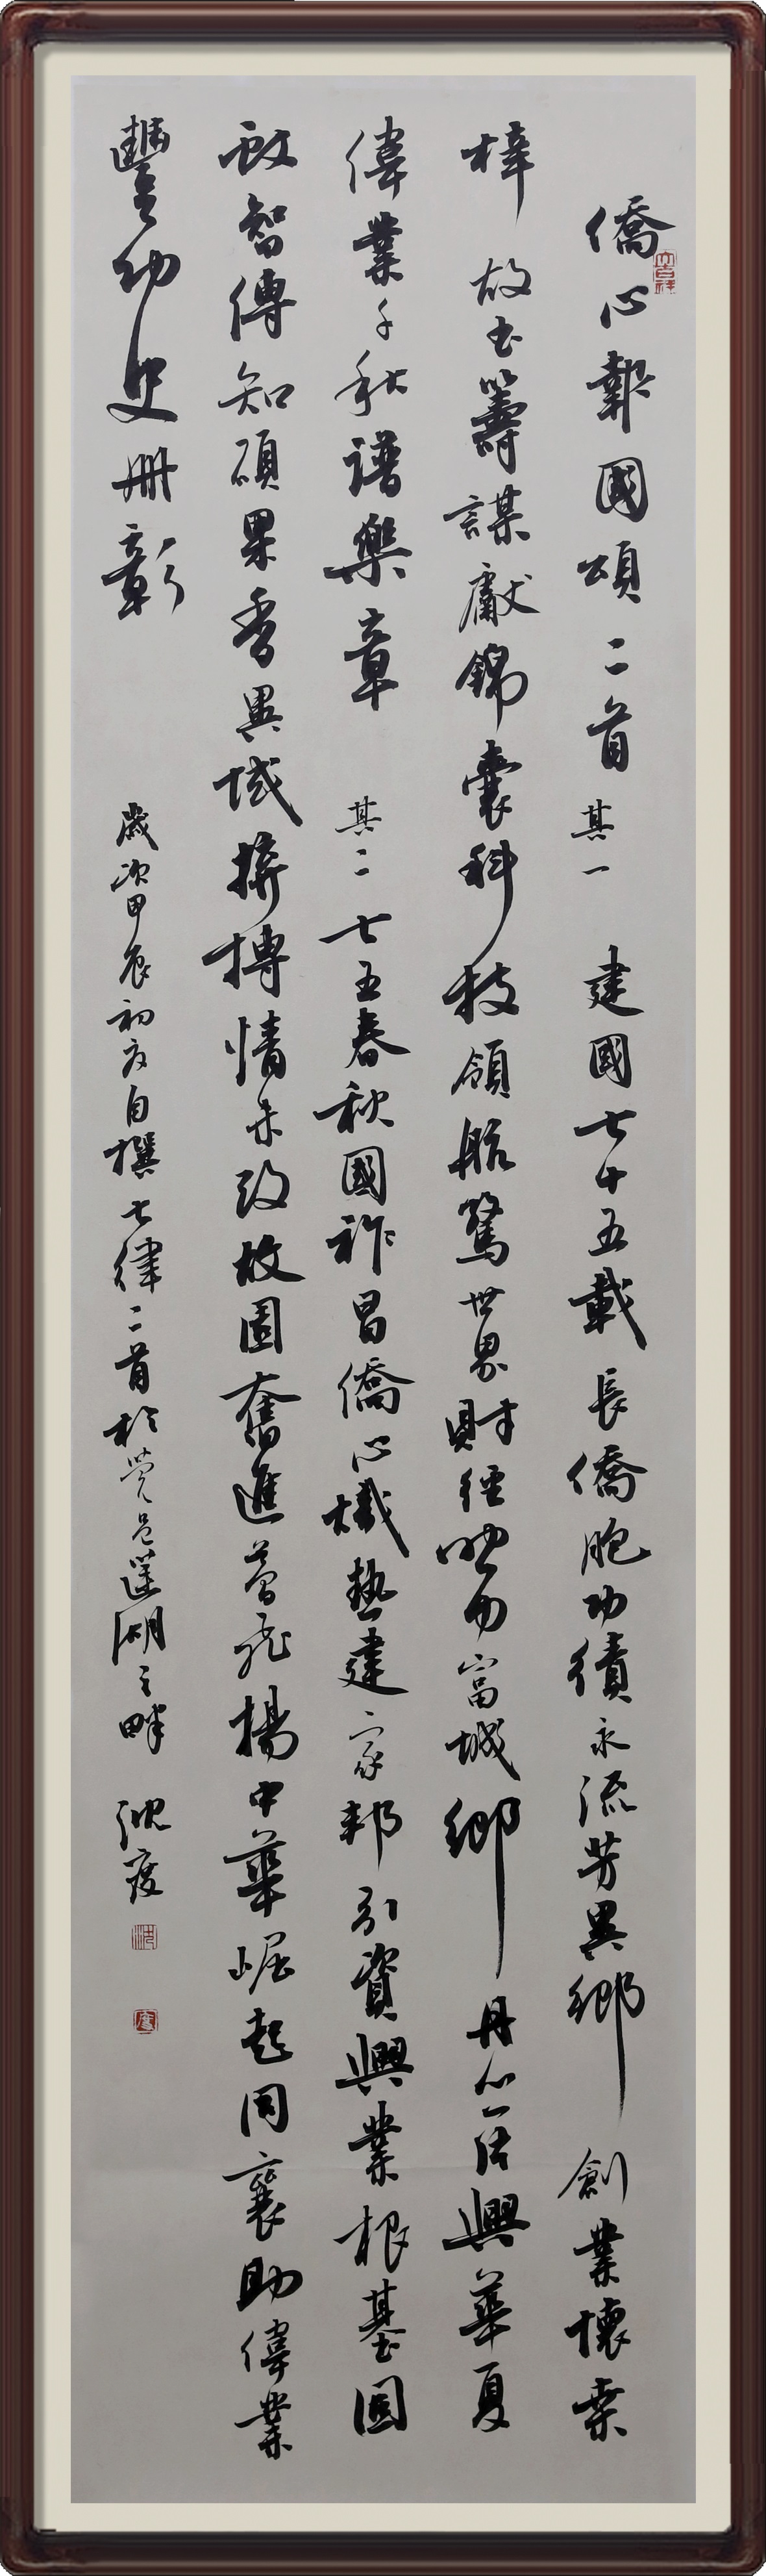 僑心報國頌二首 其一 建國七十五載長僑胞功績永流芳異鄉創業懷桑
梓故土籌謀獻錦囊科技領航驚世界財經助富城鄉丹心一片興華夏
偉業千秋譜樂章 其二 七五春秋國祚昌僑心熾熱建家邦引資興業根基固
啟智傳知碩果香異域拼搏情未改故園奮進夢飛揚中華崛起同襄助偉業
豐功史冊彰
歲次甲辰初夏自撰七律二首於邑蓮湖之畔 沈度
大吉祥
沈
度